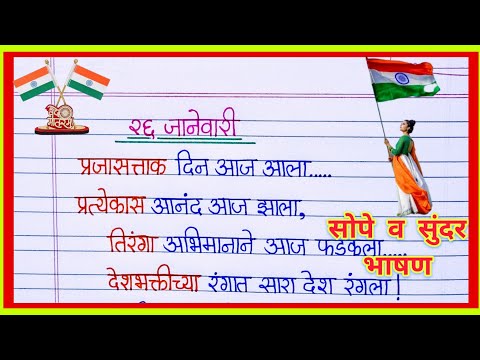 २६ जानेवारी
प्रजासत्ताक दिन आज आला.....
प्रत्येकास आनंद आज झाला,
तिरंगा अभिमानाने आज फडकला.....
देशभक्तीच्या रंगात सारा देश रंगला!
सोपे व सुंदर
भाषण